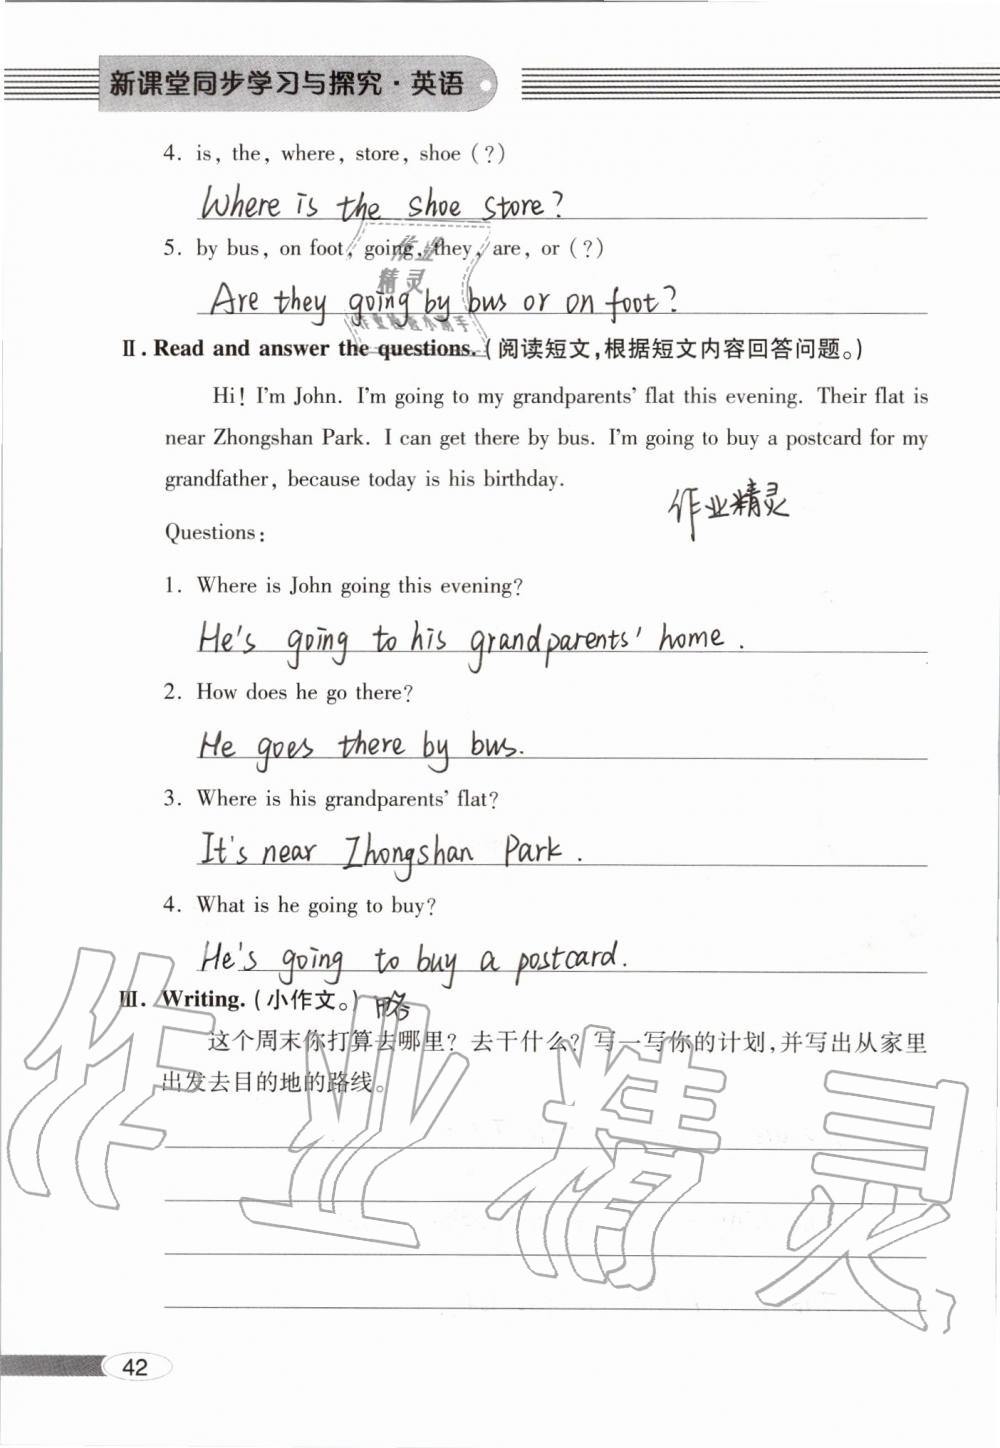 新课堂同步学习与探究·英语
4. is, the, where, store, shoe (?)
Where is the shoe store?
5. by bus, on foot, going, they, are, or (?)
Are they going by bus or on foot?
作业
精灵
作业检查小助手
II. Read and answer the questions. (阅读短文,根据短文内容回答问题。)
Hi! I'm John. I'm going to my grandparents' flat this evening. Their flat is
near Zhongshan Park. I can get there by bus. I'm going to buy a postcard for my
grandfather, because today is his birthday.
作业精灵
Questions:
1. Where is John going this evening?
He's going to his grandparents' home.
2. How does he go there?
He goes there by bus.
3. Where is his grandparents' flat?
It's near Zhongshan Park.
4. What is he going to buy?
He's going to buy a postcard.
III. Writing. (小作文。) 略
这个周末你打算去哪里? 去干什么? 写一写你的计划,并写出从家里
出发去目的地的路线。
作业精灵
42